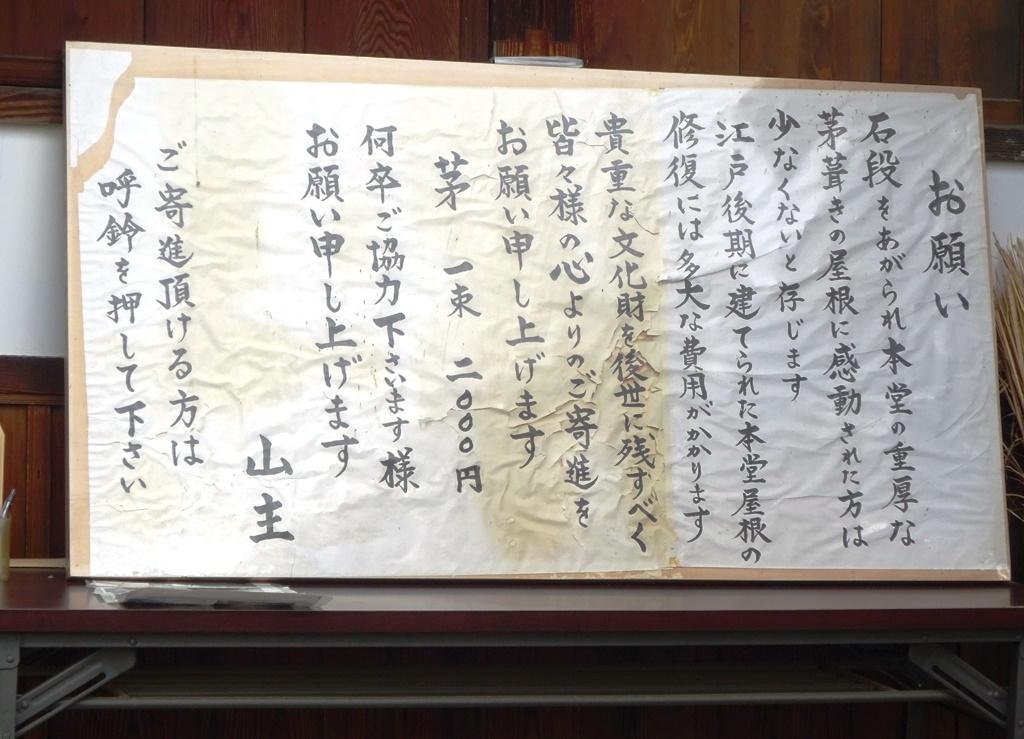 お願い
石段をあがられ本堂の重厚な
茅葺きの屋根に感動された方は
少なくないと存じます
江戸後期に建てられた本堂屋根の
修復には多大な費用がかかります
貴重な文化財を後世に残すべく
皆々様の心よりのご寄進を
お願い申し上げます
茅 一束 二〇〇〇円
何卒ご協力下さいます様
お願い申し上げます
山主
ご寄進頂ける方は
呼鈴を押して下さい